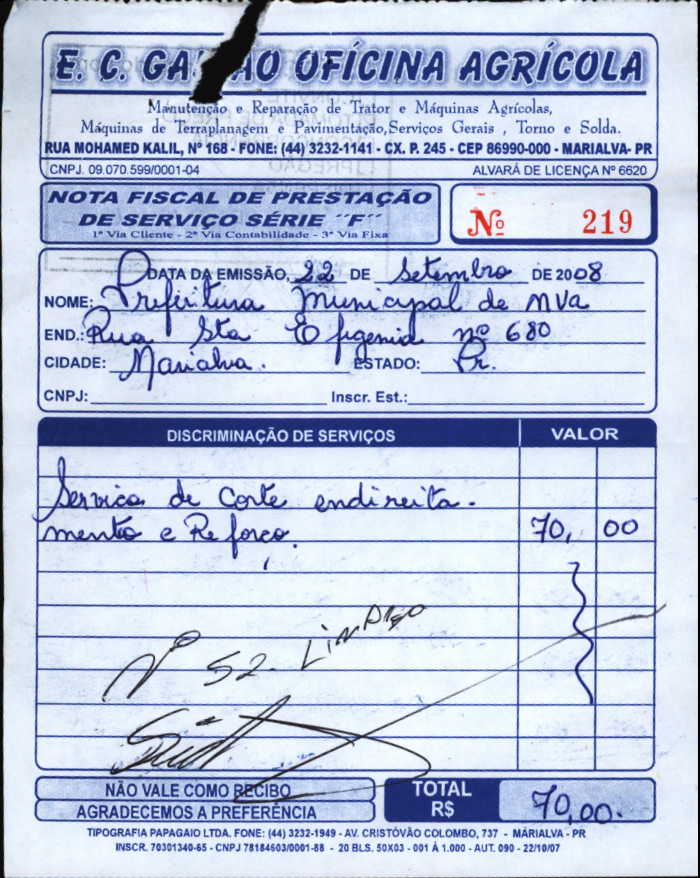 E. C. GA ÃO OFÍCINA AGRÍCOLA
Manutenção e Reparação de Trator e Máquinas Agrícolas,
Máquinas de Terraplanagem e Pavimentação,Serviços Gerais , Torno e Solda.
RUA MOHAMED KALIL, Nº 168 - FONE: (44) 3232-1141 - CX. P. 245 - CEP 86990-000 - MARIALVA- PR
CNPJ. 09.070.599/0001-04 ALVARÁ DE LICENÇA Nº 6620
NOTA FISCAL DE PRESTAÇÃO
DE SERVIÇO SÉRIE ´´F´´
1ª Via Cliente - 2ª Via Contabilidade - 3ª Via Fixa
Nº 219
DATA DA EMISSÃO, 22 DE Setembro DE 2008
NOME: Prefeitura Municipal de MVa
END.: Rua Sta Efigenia nº 680
CIDADE: Marialva. ESTADO: Pr.
CNPJ: Inscr. Est.:
DISCRIMINAÇÃO DE SERVIÇOS VALOR
Servico de Corte endireita-
mento e Reforço. 70, 00
Nº 52-
NÃO VALE COMO RECIBO
AGRADECEMOS A PREFERÊNCIA
TOTAL
R$ 70,00.
TIPOGRAFIA PAPAGAIO LTDA. FONE: (44) 3232-1949 - AV. CRISTÓVÃO COLOMBO, 737 - MARIALVA - PR
INSCR. 70301340-65 - CNPJ 78184603/0001-88 - 20 BLS. 50X03 - 001 À 1.000 - AUT. 090 - 22/10/07